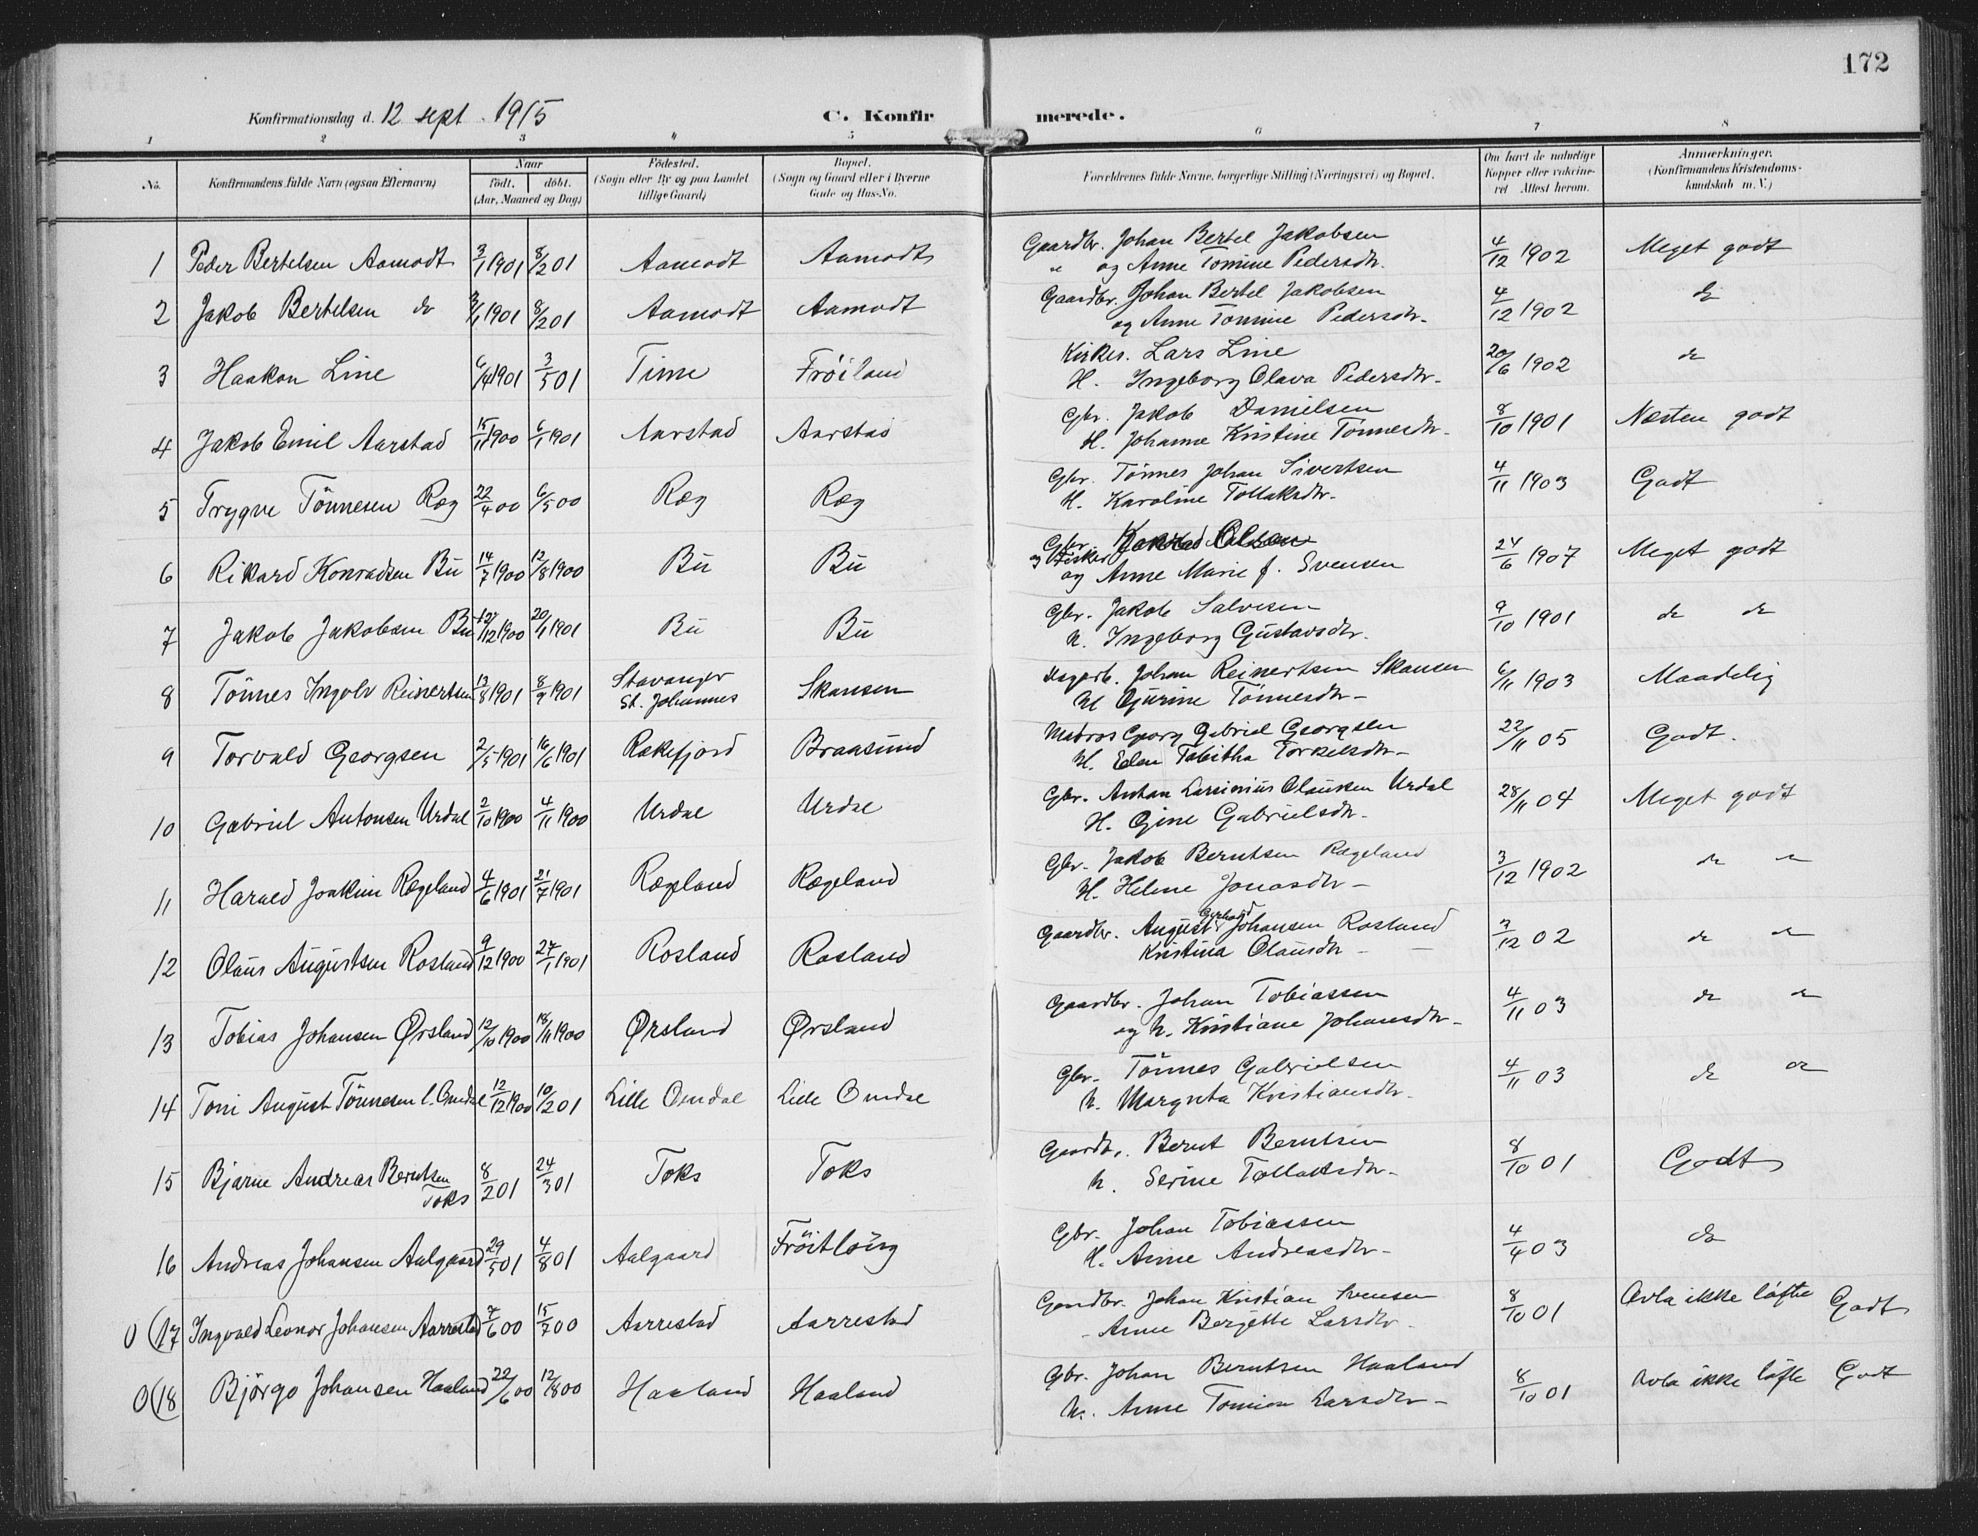 172
Konfirmationsdag d. 12 sept. 1915 C. Konfirmerede.
1 2 3 " 5 6 7 8
No. Konfirmandens fulde Navn (ogsaa Efternavn) Naar født. døbt. (Aar, Maaned og Dag) Fødested. (Sogn eller By og paa Landet tillige Gaard) Bopæl. (Sogn og Gaard eller i Byerne Gade og Hus-No. Forældrenes fulde Navne, borgerlige Stilling (Næringsvei) og Bopæl. Om havt de naturlige Kopper eller vakcineret Attest herom. Anmærkninger. (Konfirmandens Kristendomskundskab m. V.)
1 Peder Bertelsen Aamodt 3/1 1901 8/2 01 Aamodt Aamodt Gaardbr. Johan Bertel Jakobsen 4/12 1902 Meget godt
" og Anne Tomine Pedersdtr.
2 Jakob Bertelsen do 3/1 1901 8/2 01 Aamodt Aamodt Gaardbr. Johan Bertel Jakobsen 4/12 1902 do
og Anne Tomine Pedersdtr.
3 Haakon Line 6/4 1901 3/5 01 Time Frøiland Kirkes. Lars Line 20/6 1902 do
H. Ingeborg Olava Pedersdtr.
4 Jakob Emil Aarstad 15/11 1900 6/1 1901 Aarstad Aarstad Gbr. Jakob Danielsen 8/10 1901 Næsten godt
H. Johanne Kristine Tønnesdtr.
5 Trygve Tönnesen Ræg 22/4 00 6/5 00 Ræg Ræg Gbr. Tönnes Johan Sivertsen 4/11 1903 Godt
H. Karoline Tollaksdtr.
6 Rikard Konradsen Bu 14/7 1900 12/8 1900 Bu Bu Gbr. Konrad Olsen 24/6 1907 Meget godt
og Fisker
og Anne Marie f. Svensen
7 Jakob Jakobsen Bu 12/12 1900 20/1 1901 Bu Bu Gbr. Jakob Salvesen 9/10 1901 do do
H. Ingeborg Gustavsdtr.
8 Tönnes Ingolv Reinertsen 13/8 1901 8/9 1901 Stavanger Skansen Dagarb. Johan Reinertsen Skansen 6/11 1903 Maadelig
St. Johannes H Gjurine Tönnesdtr
9 Torvald Georgsen 2/5 1901 16/6 1901 Rækefjord Braasund Matros Georg Gabriel Georgsen 22/11 05 Godt.
H. Elen Tabitha Torkelsdtr
10 Gabriel Antonsen Urdal 2/10 1900 4/11 1900 Urdal Urdal Gbr. Anton Larsinius Clausen Urdal 28/11 04 Meget godt
H. Gine Gabrielsdtr.
11 Harald Joakim Rægeland 4/6 1901 21/7 1901 Rægeland Rægeland Gbr. Jakob Berntsen Rægeland 3/12 1902 do "
H. Helene Jonasdtr
12 Olaus Augustsen Rosland 9/12 1900 27/1 1901 Rosland Rosland Gaardbr. August Gerhard Johansen Rosland 3/12 02 do "
Kristina Olausdtr
13 Tobias Johansen Ørsland 12/10 1900 18/11 1900 Ørsland Ørsland Gaardbr. Johan Tobiassen 4/11 03 do do
og H. Kristiane Johansdtr
14 Toni August Tönnesen l. Omdal 12/12 1900 10/2 01 Lille Omdal Lille Omdal Gbr. Tönnes Gabrielsen 4/11 03 do do
H. Margreta Kristiansdtr.
15 Bjarne Andreas Berntsen 8/2 01 24/3 01 Toks Toks Gaardb. Bernt Berntsen 8/10 01 Godt
Toks H. Serine Tollaksdtr
16 Andreas Johansen Aalgaard 29/5 01 4/8 01 Aalgaard Frøitløng Gbr. Johan Tobiassen 4/4 03 do
H. Anne Andreasdtr
0 (17 Ingvald Leonor Johansen Aarrestad 7/6 00 15/7 00 Aarrestad Aarrestad Gaardbr. Johan Kristian Svensen 8/10 01 Avla ikke løfte Godt
Anne Bergette Larsdtr
0 (18 Bjørgo Johansen Haaland 22/6 00 12/8 00 Haaland Haaland Gbr. Johan Berntsen Haaland 8/10 01 Avla ikke løfte Godt
H. Anne Tomine Larsdtr